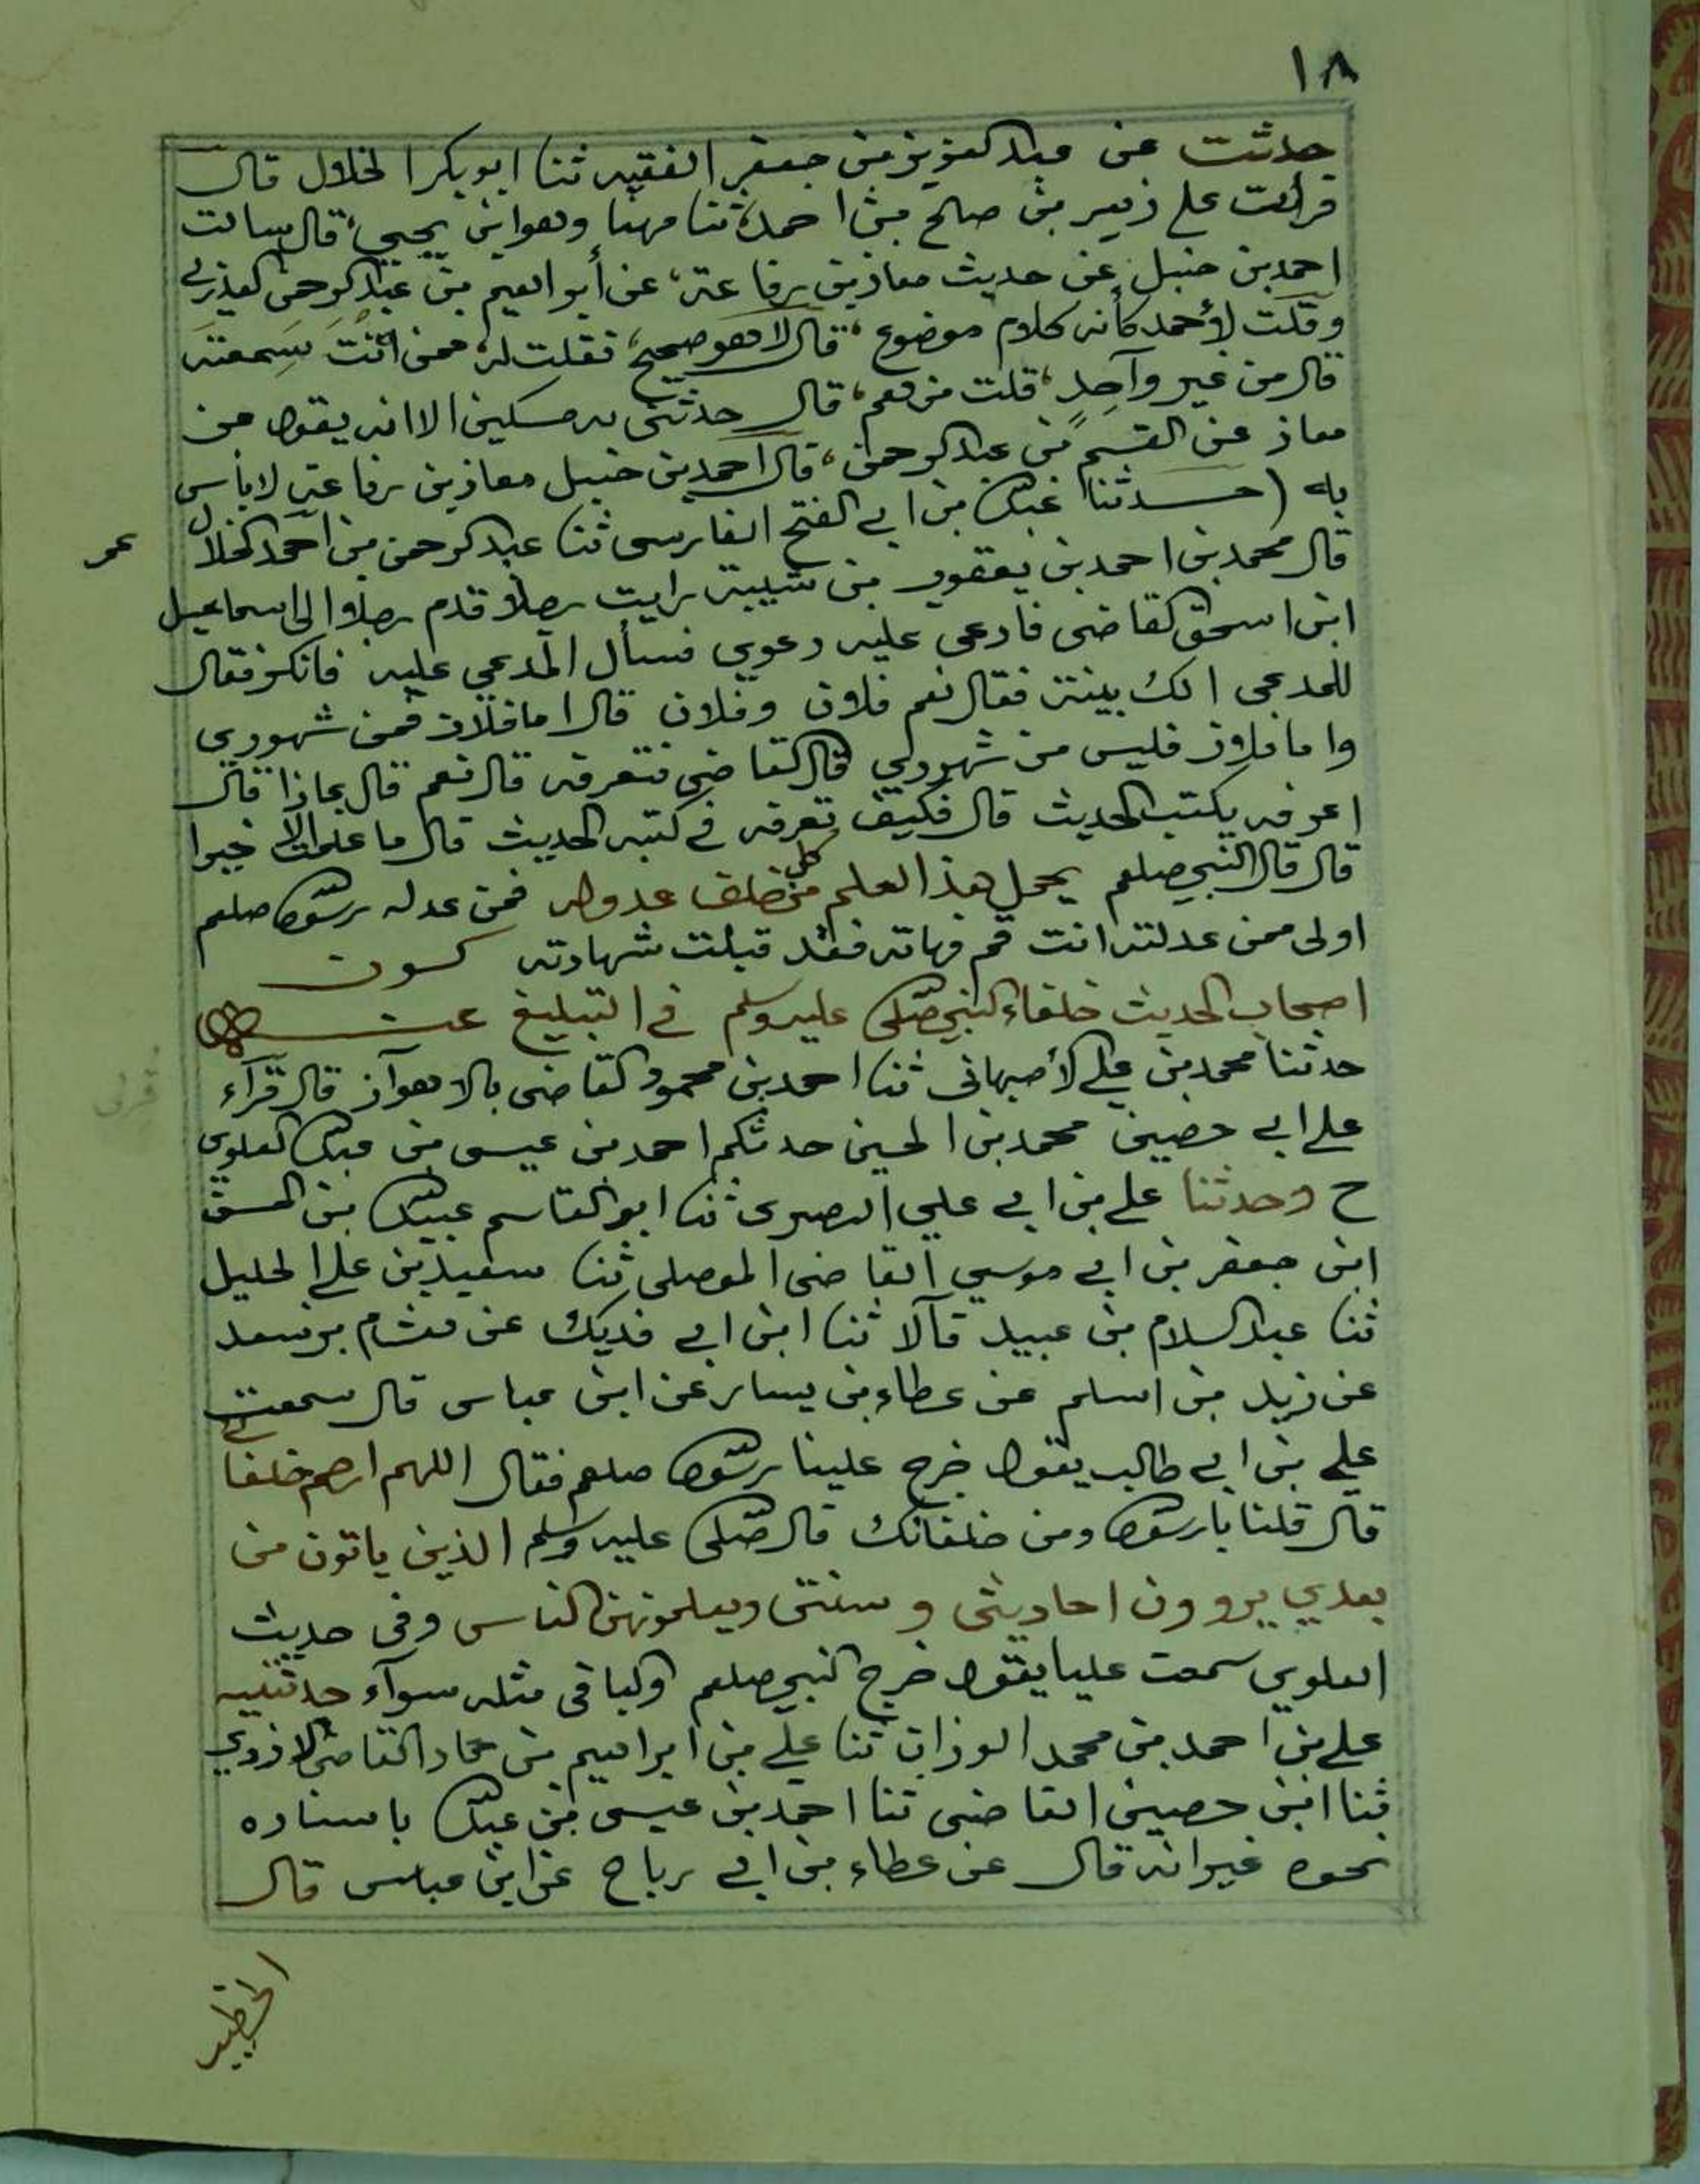 ١٨
حدثت عن عبد العزيز بن جعفر الفقيه ثنا ابو بكر الخلال قال
قرأت على زهير بن صالح بن احمد، ثنا مهنا وهو ابن يحيى، قال سالت
احمد بن حنبل عن حديث معاذ بن رفاعة، عن أبراهيم بن عبد الرحمن العذري
وقلت لأحمد كأنه كلام موضوع، قال لا هو صحيح، فقلت له، ممن انت سمعته
قال من غير واحد، قلت من هم، قال حدثني به مسكين الا انه يقول عن
معاذ عن القسم بن عبد الرحمن، قال احمد بن حنبل معاذ بن رفاعة لا باس
به (حدثنا عبيد الله بن ابي الفتح الفارسى ثنا عبد الرحمن بن احمد الخلال
عمر
قال محمد بن احمد بن يعقوب بن شيبة رايت رجلا قدم رجلا الى اسماعيل
ابن اسحق القاضى فادعى عليه دعوي فسأل المدعي عليه فانكر فقال
للمدعى الك بينة فقال نعم فلان وفلان قال اما فلان فمن شهودي
واما فلان فليس من شهودي قال القاضي فتعرفه قال نعم قال بماذا قال
اعرفه بكتب الحديث قال فكيف تعرفه في كتبه الحديث قال ما علمت الا خيرا
قال قال النبي صلعم يحمل هذا العلم من كل خلف عدوله فمن عدله رسول الله صلعم
اولى ممن عدلته انت قم فهاته فقد قبلت شهادته كون
اصحاب الحديث خلفاء النبي صلى الله عليه وسلم في التبليغ عنه
حدثنا محمد بن علي الأصبهانى ثنا احمد بن محمود القاضى بالاهواز قال قرآء
على ابي حصين محمد بن الحسين حدثكم احمد بن عيسى بن عبد الله العلوي
ح وحدثنا على بن ابي علي البصرى ثنا ابو القاسم عبيد الله بن الحسن
ابن جعفر بن ابي موسي القاضى الموصلى ثنا سعيد بن على الجليل
ثنا عبد السلام بن عبيد قالا ثنا ابن ابي فديك عن هشام بن سعد
عن زيد بن اسلم عن عطاء بن يسار عن ابن عباس قال سمعت
علي بن ابي طالب يقول خرج علينا رسول الله صلعم فقال اللهم ارحم خلفائي
قال قلنا يا رسول الله ومن خلفائك قال صلى الله عليه وسلم الذين ياتون من
بعدي يروون احاديثى وسنتى ويعلمونهن الناس وفى حديث
العلوي سمعت عليا يقول خرج النبي صلعم والباقى مثله سوآء حدثنيه
على بن احمد بن محمد الوزان ثنا علي بن ابراهيم بن حماد القاضى الازدي
ثنا ابن حصين القاضى ثنا احمد بن عيسى بن عبد الله باسناده
نحوه غير انه قال عن عطاء بن ابي رباح عن ابن عباس قال
الخطيب